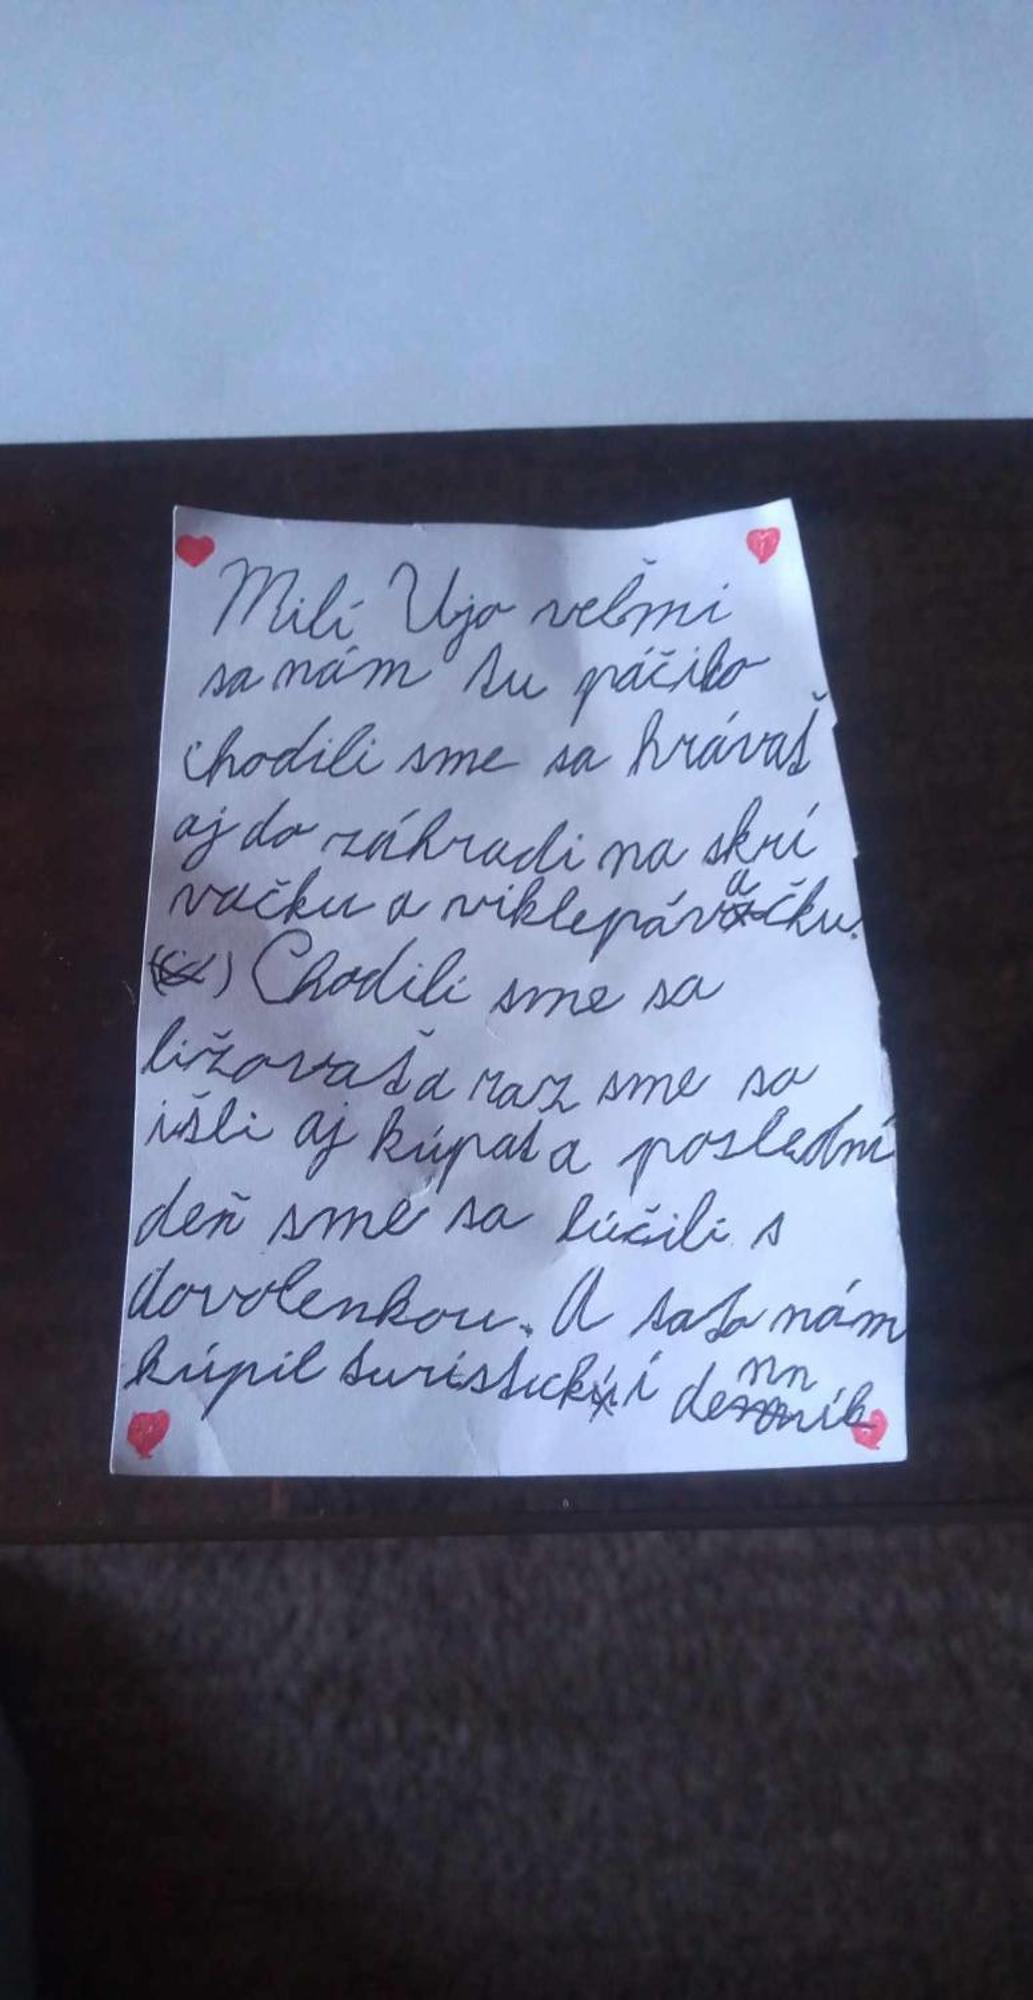 Milí Ujo veľmi
sa nám tu páčilo
chodili sme sa hrávať
aj do záhradi na skrí
vačku a viklepávačku.
Chodili sme sa
ližovať a raz sme sa
išli aj kúpať a poslední
deň sme sa lúčili s
dovolenkou. A tato nám
kúpil turistickí denník